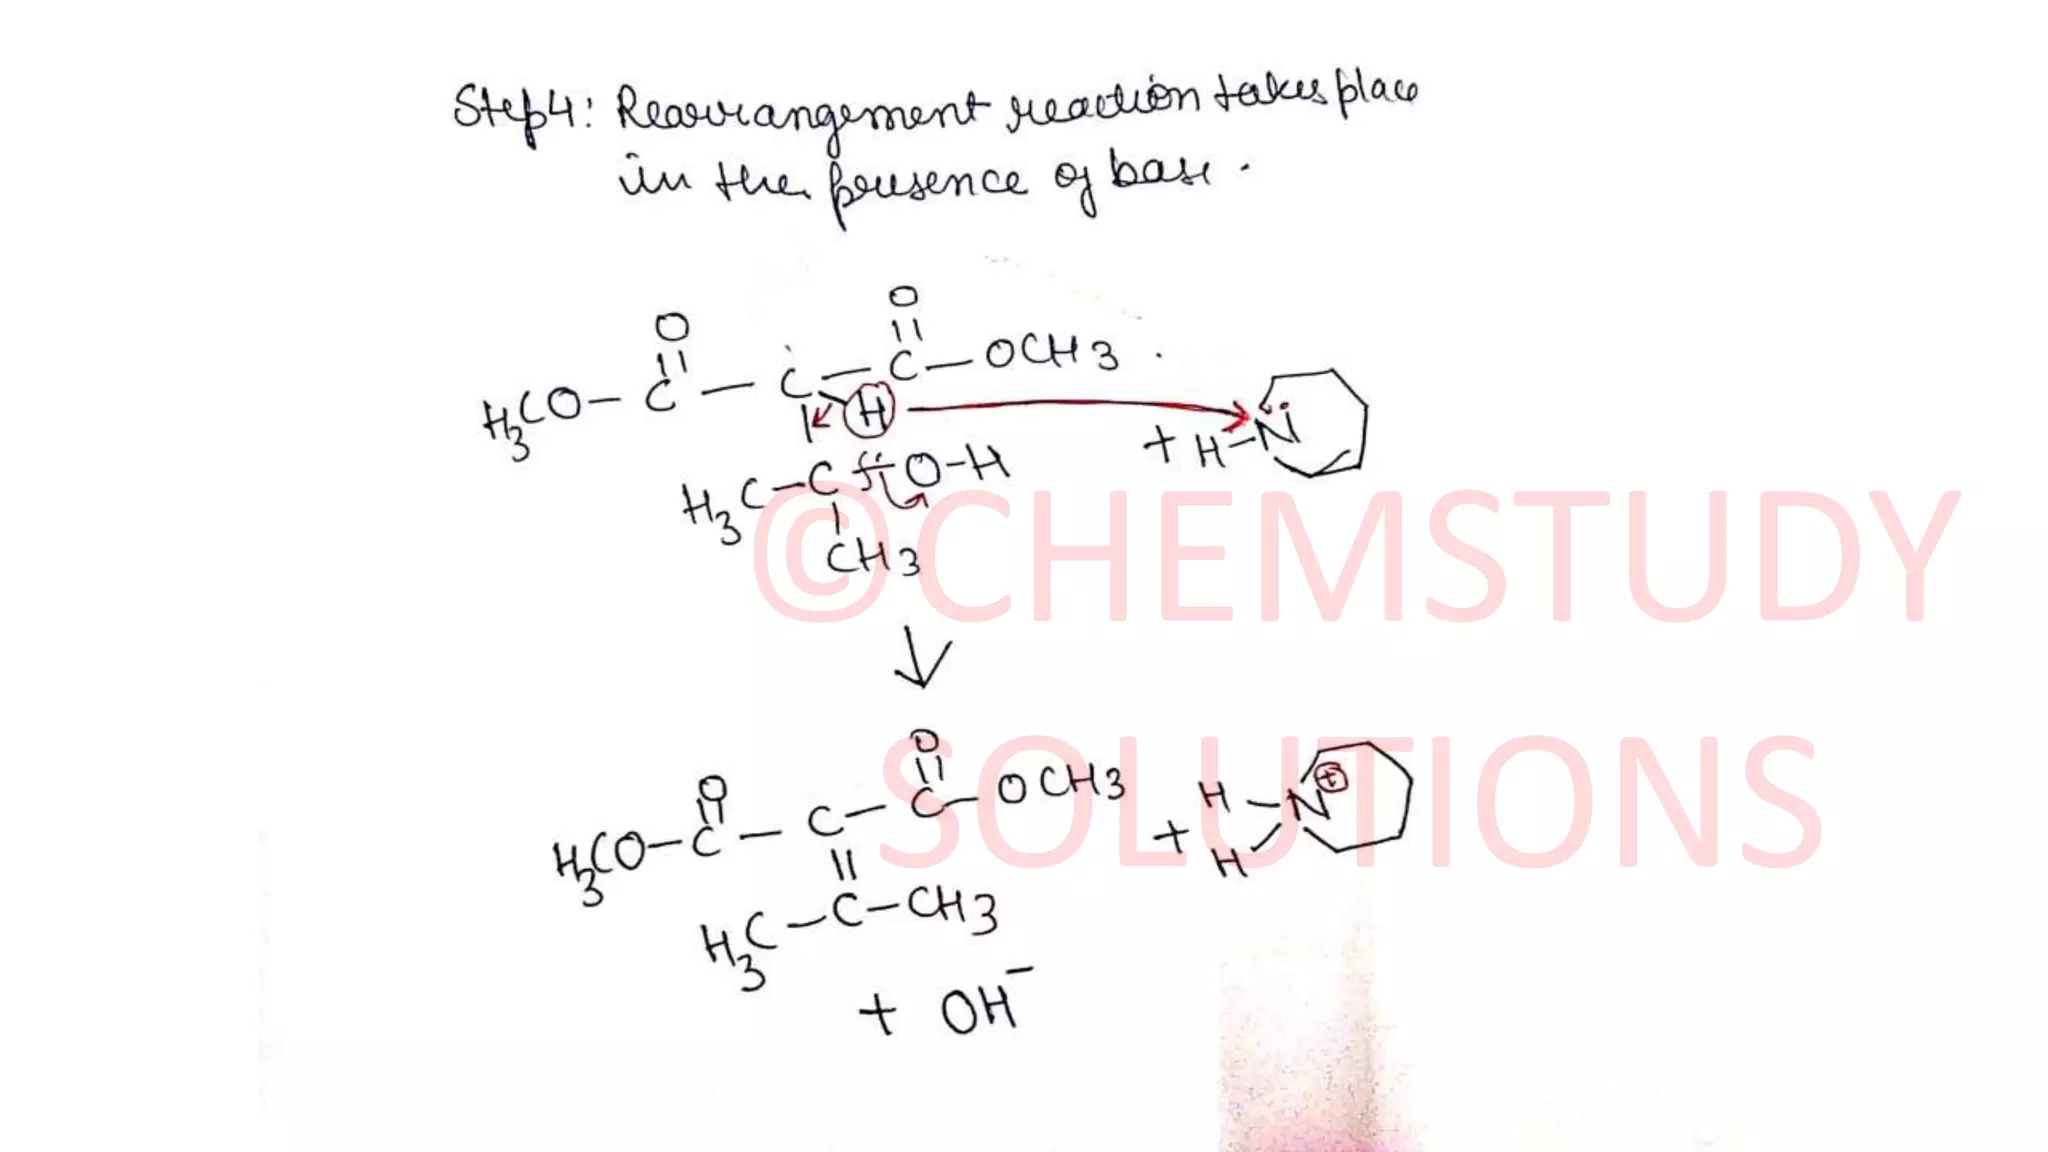 Step4: Rearrangement reaction takes place
in the presence of base.
O
O
H3CO-C-C-C-OCH3
H
+ H-N
H3C-C-O-H
CH3
©CHEMSTUDY
SOLUTIONS
O
O
H3CO-C-C-C-OCH3
+ H N +
H
H3C-C-CH3
+ OH-